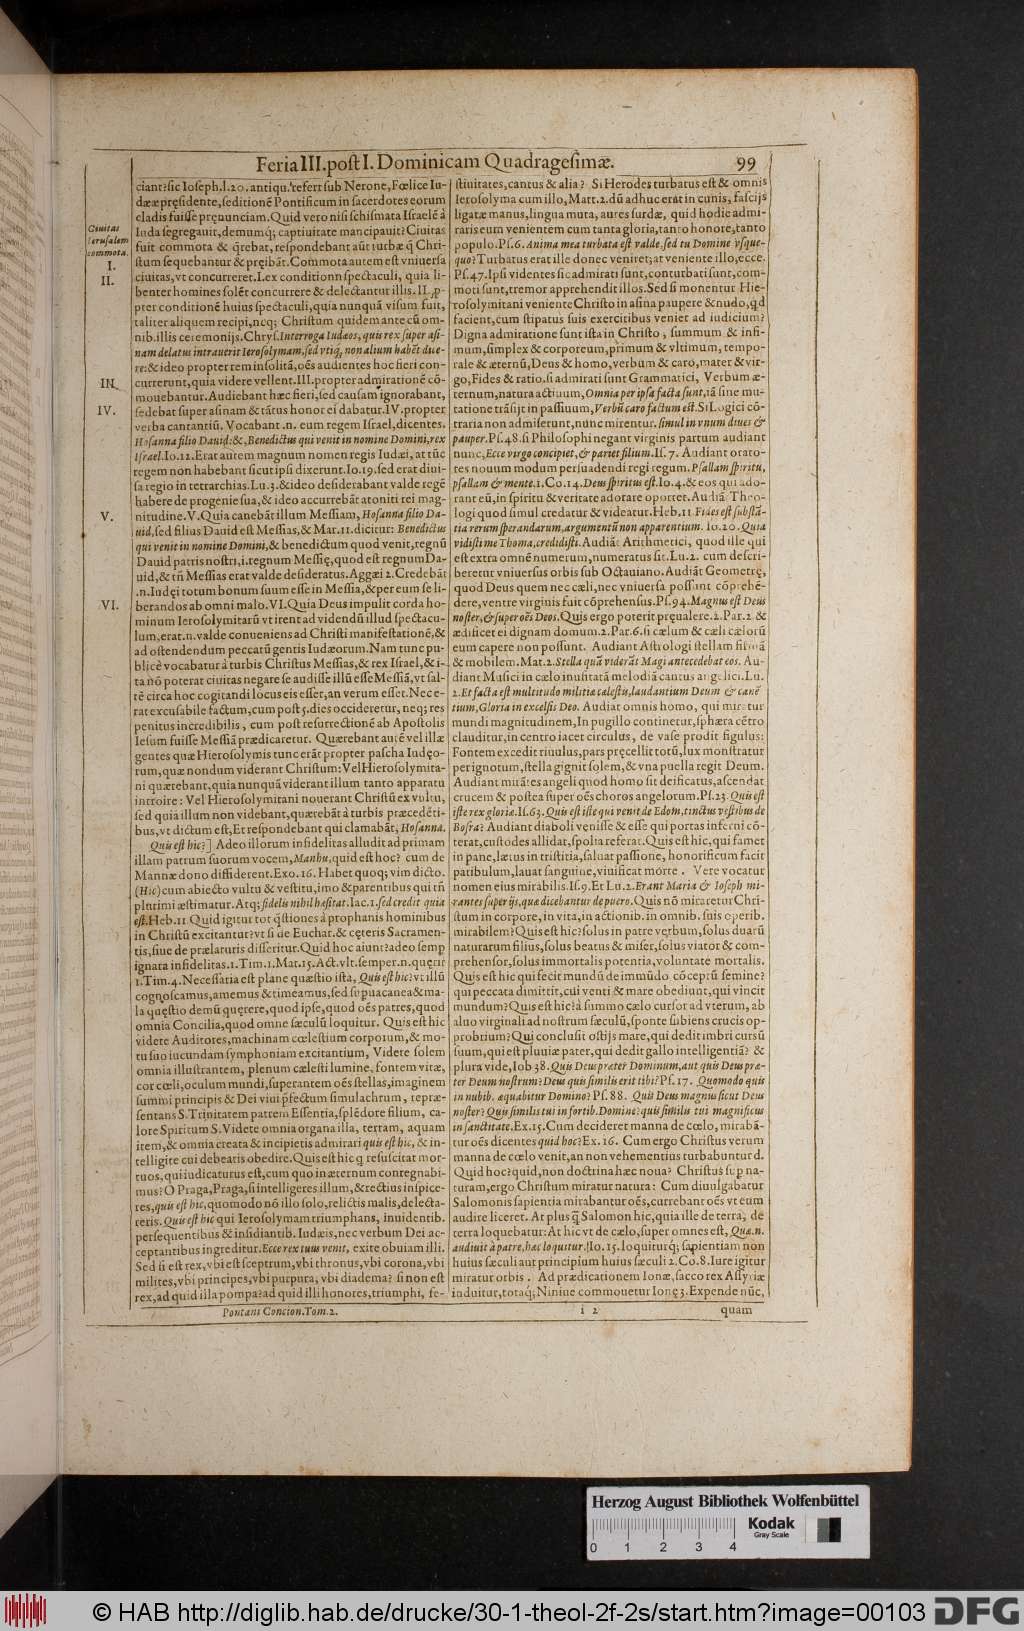 Feria III. post I. Dominicam Quadragesimæ. 99
Ciuitas
Ierusalem
commota.
I.
II.
III.
IV.
V.
VI.
ciant? sic Ioseph. l. 20. antiqu. refert sub Nerone, Fœlice Iu-
dææ pręsidente, seditionē Pontificum in sacerdotes eorum
cladis fuisse pręnunciam. Quid vero nisi schismata Israelē à
Iuda segregauit, demumq́; captiuitate mancipauit? Ciuitas
fuit commota & q̄rebat, respondebant aūt turbæ q̄ Chri-
stum sequebantur & pręibāt. Commota autem est vniuersa
ciuitas, vt concurreret. I. ex conditionn spectaculi, quia li-
benter homines solēt concurrere & delectantur illis. II. p-
pter conditionē huius spectaculi, quia nunquā visum fuit,
taliter aliquem recipi, neq; Christum quidem ante cū om-
nib. illis ceremonijs. Chrys. Interroga Iudæos, quis rex super asi-
nam delatus intrauerit Ierosolymam, sed vtiq̃, non alium habēt dice-
re: & ideo propter rem insolitā, oēs audientes hoc fieri con-
currerunt, quia videre vellent. III. propter admirationē cō-
mouebantur. Audiebant hæc fieri, sed causam ignorabant,
sedebat super asinam & tātus honor ei dabatur. IV. propter
verba cantantiū. Vocabant .n. eum regem Israel, dicentes.
Hosanna filio Dauid: &, Benedictus qui venit in nomine Domini, rex
Israel. Io. 12. Erat autem magnum nomen regis Iudæi, at tūc
regem non habebant sicut ipsi dixerunt. Io. 19. sed erat diui-
sa regio in tetrarchias. Lu. 3. & ideo desiderabant valde regē
habere de progenie sua, & ideo accurrebāt atoniti rei mag-
nitudine. V. Quia canebāt illum Messiam, Hosanna filio Da-
uid, sed filius Dauid est Messias, & Mat. 11. dicitur: Benedictus
qui venit in nomine Domini, & benedictum quod venit, regnū
Dauid patris nostri, i. regnum Messię, quod est regnum Da-
uid, & tn̄ Messias erat valde desideratus. Aggæi 2. Credebāt
.n. Iudęi totum bonum suum esse in Messia, & per eum se li-
berandos ab omni malo. VI. Quia Deus impulit corda ho-
minum Ierosolymitarū vt irent ad videndū illud spectacu-
lum, erat .n. valde conueniens ad Christi manifestationē, &
ad ostendendum peccatū gentis Iudæorum. Nam tunc pu-
blicè vocabatur à turbis Christus Messias, & rex Israel, & i-
ta nō poterat ciuitas negare se audisse illū esse Messiā, vt sal-
tē circa hoc cogitandi locus eis esset, an verum esset. Nec e-
rat excusabile factum, cum post 5. dies occideretur, neq; res
penitus incredibilis, cum post resurrectionē ab Apostolis
Iesum fuisse Messiā prædicaretur. Quærebant autē vel illæ
gentes quæ Hierosolymis tunc erāt propter pascha Iudęo-
rum, quæ nondum viderant Christum: Vel Hierosolymita-
ni quærebant, quia nunquā viderant illum tanto apparatu
introire: Vel Hierosolymitani nouerant Christū ex vultu,
sed quia illum non videbant, quærebāt à turbis præcedēti-
bus, vt dictum est, Et respondebant qui clamabāt, Hosanna.
Quis est hic?] Adeo illorum infidelitas alludit ad primam
illam patrum suorum vocem, Manhu, quid est hoc? cum de
Mannæ dono diffiderent. Exo. 16. Habet quoq; vim dicto.
(Hic) cum abiecto vultu & vestitu, imo & parentibus qui tn̄
plurimi æstimatur. Atq; fidelis nihil hæsitat. Iac. 1. sed credit quia
est. Heb. 11 Quid igitur tot q̄stiones à prophanis hominibus
in Christū excitantur? vt si de Euchar. & cęteris Sacramen-
tis, siue de prælaturis disseritur. Quid hoc aiunt? adeo semp
ignara infidelitas. 1. Tim. 1. Mat. 15. Act. vlt. semper .n. quęrit
1. Tim. 4. Necessaria est plane quæstio ista, Quis est hic? vt illū
cognoscamus, amemus & timeamus, sed superuacanea & ma-
la quęstio demū quęrere, quod ipse, quod oēs patres, quod
omnia Concilia, quod omne sæculū loquitur. Quis est hic
videte Auditores, machinam cœlestium corporum, & mo-
tu suo iucundam symphoniam excitantium, Videte solem
omnia illustrantem, plenum cælesti lumine, fontem vitæ,
cor cœli, oculum mundi, superantem oēs stellas, imaginem
summi principis & Dei viui pfectum simulachrum, repræ-
sentans S. Trinitatem patrem Essentia, splēdore filium, ca-
lore Spiritum S. Videte omnia organa illa, terram, aquam
item, & omnia creata & incipietis admirari quis est hic, & in-
telligite cui debeatis obedire. Quis est hic q resuscitat mor-
tuos, qui iudicaturus est, cum quo in æternum contregnabi-
mus? O Praga, Praga, si intelligeres illum, & rectius inspice-
res, quis est hic, quomodo nō illo solo, relictis malis, delecta-
reris. Quis est hic qui Ierosolymam triumphans, inuidentib.
persequentibus & insidiantib. Iudæis, nec verbum Dei ac-
ceptantibus ingreditur. Ecce rex tuus venit, exite obuiam illi.
Sed si est rex, vbi est sceptrum, vbi thronus, vbi corona, vbi
milites, vbi principes, vbi purpura, vbi diadema? si non est
rex, ad quid illa pompa? ad quid illi honores, triumphi, fe-
stiuitates, cantus & alia? Si Herodes turbatus est & omnis
Ierosolyma cum illo, Matt. 2. dū adhuc erat in cunis, fascijs
ligatæ manus, lingua muta, aures surdæ, quid hodie admi-
raris eum venientem cum tanta gloria, tanto honore, tanto
populo. Ps. 6. Anima mea turbata est valde, sed tu Domine vsque-
quo? Turbatus erat ille donec veniret; at veniente illo, ecce.
Ps. 47. Ipsi videntes sic admirati sunt, conturbati sunt, com-
moti sunt, tremor apprehendit illos. Sed si monentur Hie-
rosolymitani veniente Christo in asina paupere & nudo, qd
facient, cum stipatus suis exercitibus veniet ad iudicium?
Digna admiratione sunt ista in Christo, summum & infi-
mum, simplex & corporeum, primum & vltimum, tempo-
rale & æternū, Deus & homo, verbum & caro, mater & vir-
go, Fides & ratio. si admirati sunt Grammatici, Verbum æ-
ternum, natura actiuum, Omnia per ipsa facta sunt, iā sine mu-
tatione trāsijt in passiuum, Verbū caro factum est. Si Logici cō-
traria non admiserunt, nunc mirentur. simul in vnum diues &
pauper. Ps. 48. si Philosophi negant virginis partum audiant
nunc, Ecce virgo concipiet, & pariet filium. Is. 7. Audiant orato-
res nouum modum persuadendi regi regum. Psallam spiritu,
psallam & mente. 1. Co. 14. Deus spiritus est. Io. 4. & eos qui ado-
rant eū, in spiritu & veritate adorare oportet. Audiā Theo-
logi quod simul credatur & videatur. Heb. 11 Fides est substā-
tia rerum sperandarum, argumentū non apparentium. Io. 20. Quia
vidisti me Thoma, credidisti. Audiāt Arithmetici, quod ille qui
est extra omnē numerum, numeratus sit. Lu. 2. cum descri-
beretur vniuersus orbis sub Octauiano. Audiāt Geometrę,
quod Deus quem nec cæli, nec vniuersa possunt cōprehē-
dere, ventre virginis fuit cōprehensus. Ps. 94. Magnus est Deus
noster, & super oēs Deos. Quis ergo poterit pręualere. 2. Par. 2 &
ædificet ei dignam domum. 2. Par. 6. si cælum & cæli cælorū
eum capere non possunt. Audiant Astrologi stellam firmā
& mobilem. Mat. 2. Stella quā viderāt Magi antecedebat eos. Au-
diant Musici in cælo inusitatā melodiā cantus angelici. Lu.
2. Et facta est multitudo militiæ cælestis, laudantium Deum & canē
tium, Gloria in excelsis Deo. Audiat omnis homo, qui miretur
mundi magnitudinem, In pugillo continetur, sphæra cētro
clauditur, in centro iacet circulus, de vase prodit figulus:
Fontem excedit riuulus, pars pręcellit totū, lux monstratur
per ignotum, stella gignit solem, & vna puella regit Deum.
Audiant mirātes angeli quod homo sit deificatus, ascendat
crucem & postea super oēs choros angelorum. Ps. 23. Quis est
iste rex gloriæ. Is. 63. Quis est iste qui venit de Edom, tinctus vestibus de
Bosra? Audiant diaboli venisse & esse qui portas inferni cō-
terat, custodes allidat, spolia referat. Quis est hic, qui famet
in pane, lætus in tristitia, saluat passione, honorificum facit
patibulum, lauat sanguine, viuificat morte. Vere vocatur
nomen eius mirabilis. Is. 9. Et Lu. 2. Erant Maria & Ioseph mi-
rantes super ijs, quæ dicebantur de puero. Quis nō miraretur Chri-
stum in corpore, in vita, in actionib. in omnib. suis operib.
mirabilem? Quis est hic? solus in patre verbum, solus duarū
naturarum filius, solus beatus & miser, solus viator & com-
prehensor, solus immortalis potentia, voluntate mortalis.
Quis est hic qui fecit mundū de immūdo cōceptū semine?
qui peccata dimittit, cui venti & mare obediunt, qui vincit
mundum? Quis est hic? à summo cælo cursor ad vterum, ab
aluo virginali ad nostrum sæculū, sponte subiens crucis op-
probrium? Qui conclusit ostijs mare, qui dedit imbri cursū
suum, qui est pluuiæ pater, qui dedit gallo intelligentiā? &
plura vide, Iob 38. Quis Deus præter Dominum, aut quis Deus præ-
ter Deum nostrum? Deus quis similis erit tibi? Ps. 17. Quomodo quis
in nubib. æquabitur Domino? Ps. 88. Quis Deus magnus sicut Deus
noster? Quis similis tui in fortib. Domine? quis similis tui magnificus
in sanctitate. Ex. 15. Cum decideret manna de cœlo, mirabā-
tur oēs dicentes quid hoc? Ex. 16. Cum ergo Christus verum
manna de cœlo venit, an non vehementius turbabuntur d.
Quid hoc? quid, non doctrina hæc noua? Christus sup na-
turam, ergo Christum miratur natura: Cum diuulgabatur
Salomonis sapientia mirabantur oēs, currebant oēs vt eum
audire liceret. At plus q̄ Salomon hic, quia ille de terra, de
terra loquebatur: At hic vt de cælo, super omnes est, Quæ .n.
audiuit à patre, hæc loquitur. Io. 15. loquiturq́; sapientiam non
huius sæculi aut principium huius sæculi 2. Co. 8. Iure igitur
miratur orbis. Ad prædicationem Ionæ, sacco rex Assyriæ
induitur, totaq́; Niniue commouetur Ionę 3. Expende nūc,
Pontani Concion. Tom. 2. i 2 quam
Herzog August Bibliothek Wolfenbüttel
Kodak
Gray Scale
0 1 2 3 4
© HAB http://diglib.hab.de/drucke/30-1-theol-2f-2s/start.htm?image=00103
DFG